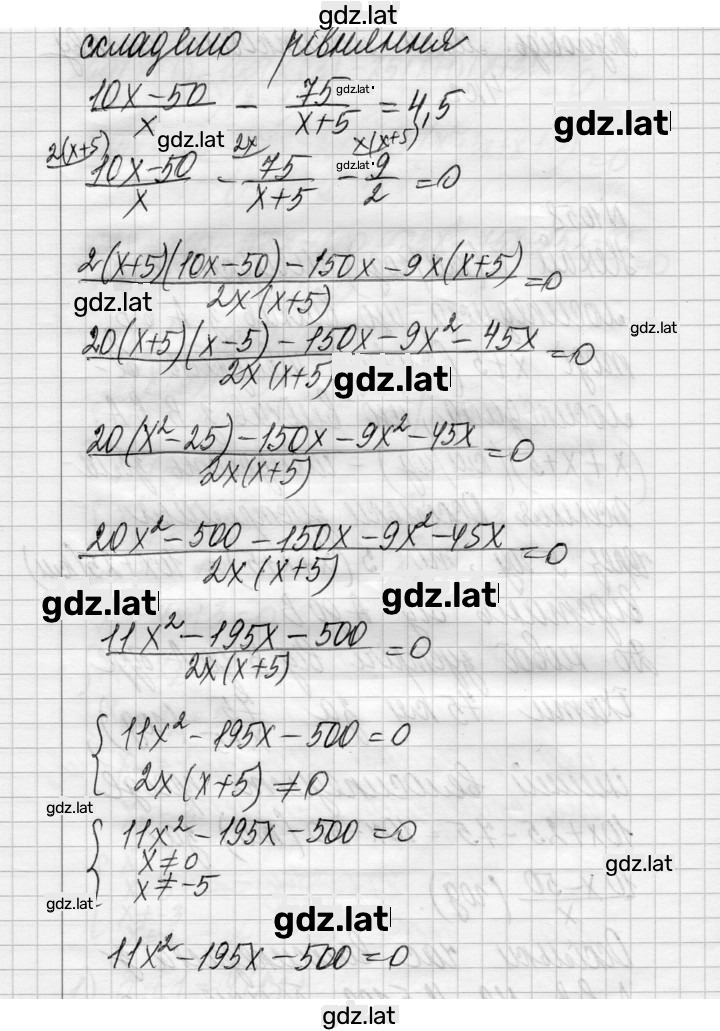 gdz.lat
складемо рівняння
(10x-50)/x - 75/(x+5) = 4,5
gdz.lat
gdz.lat
gdz.lat
2(x+5) 2x x(x+5)
(10x-50)/x - 75/(x+5) - 9/2 = 0
gdz.lat
(2(x+5)(10x-50)-150x-9x(x+5))/(2x(x+5)) = 0
gdz.lat
(20(x+5)(x-5)-150x-9x²-45x)/(2x(x+5)) = 0
gdz.lat
gdz.lat
(20(x²-25)-150x-9x²-45x)/(2x(x+5)) = 0
(20x²-500-150x-9x²-45x)/(2x(x+5)) = 0
gdz.lat
gdz.lat
(11x²-195x-500)/(2x(x+5)) = 0
{ 11x²-195x-500=0
2x(x+5)≠0
gdz.lat
{ 11x²-195x-500=0
x≠0
x≠-5
gdz.lat
gdz.lat
gdz.lat
11x²-195x-500=0
gdz.lat